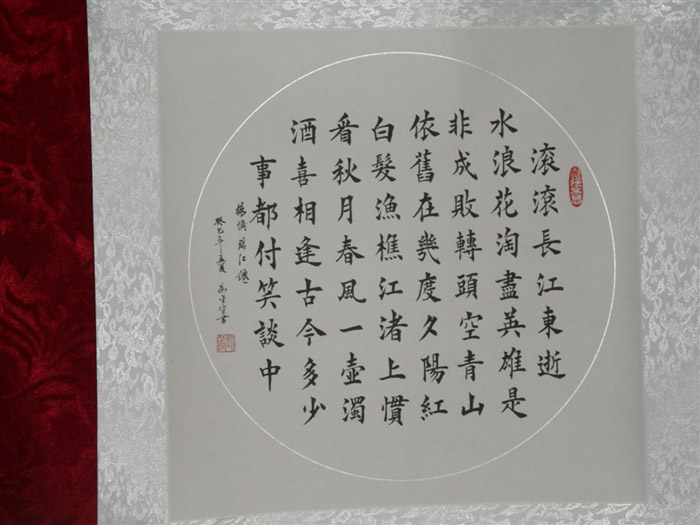 滚滚長江東逝
水浪花淘盡英雄是
非成敗轉頭空青山
依舊在幾度夕陽紅
白髮漁樵江渚上慣
看秋月春風一壺濁
酒喜相逢古今多少
事都付笑談中
楊慎臨江僊
癸巳年孟夏